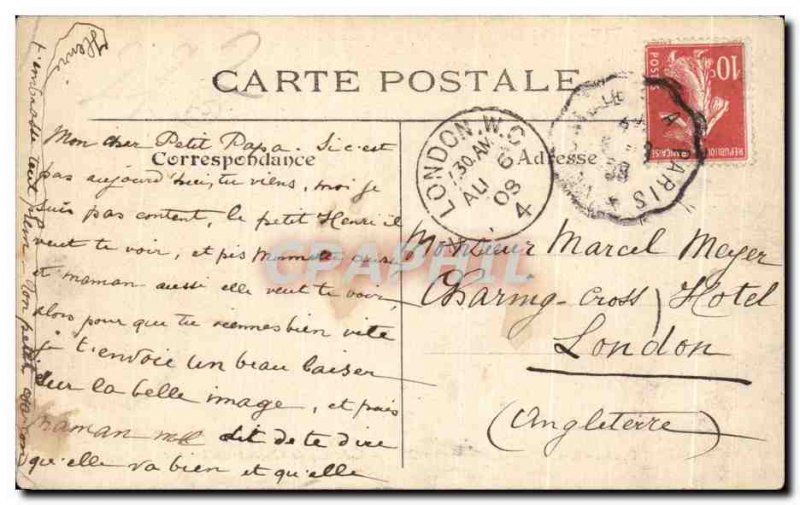 CARTE POSTALE
Correspondance
Adresse
Mon cher Petit Papa. Si c'est
pas aujourd'hui, tu viens, moi je
suis pas content, le petit Henri il
veut te voir, et pis aussi
et maman aussi elle veut te voir,
alors pour que tu viennes bien vite
je t'envoie un beau baiser
sur la belle image, et puis
maman dit de te dire
qu'elle va bien et qu'elle
t'embrasse tout plein. Ton petit
Henri
LONDON. W.C
30 AM
6
08
4
A PARIS
08
10c
POSTES
REPUBLIQUE
Monsieur Marcel Meyer
Charing-Cross Hotel
London
(Angleterre)
CPAPHIL